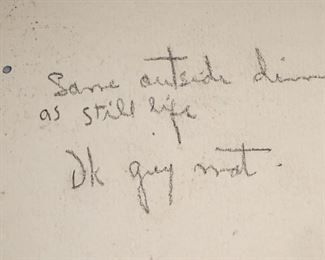 Same outside dim
as still life
Dk grey mat.